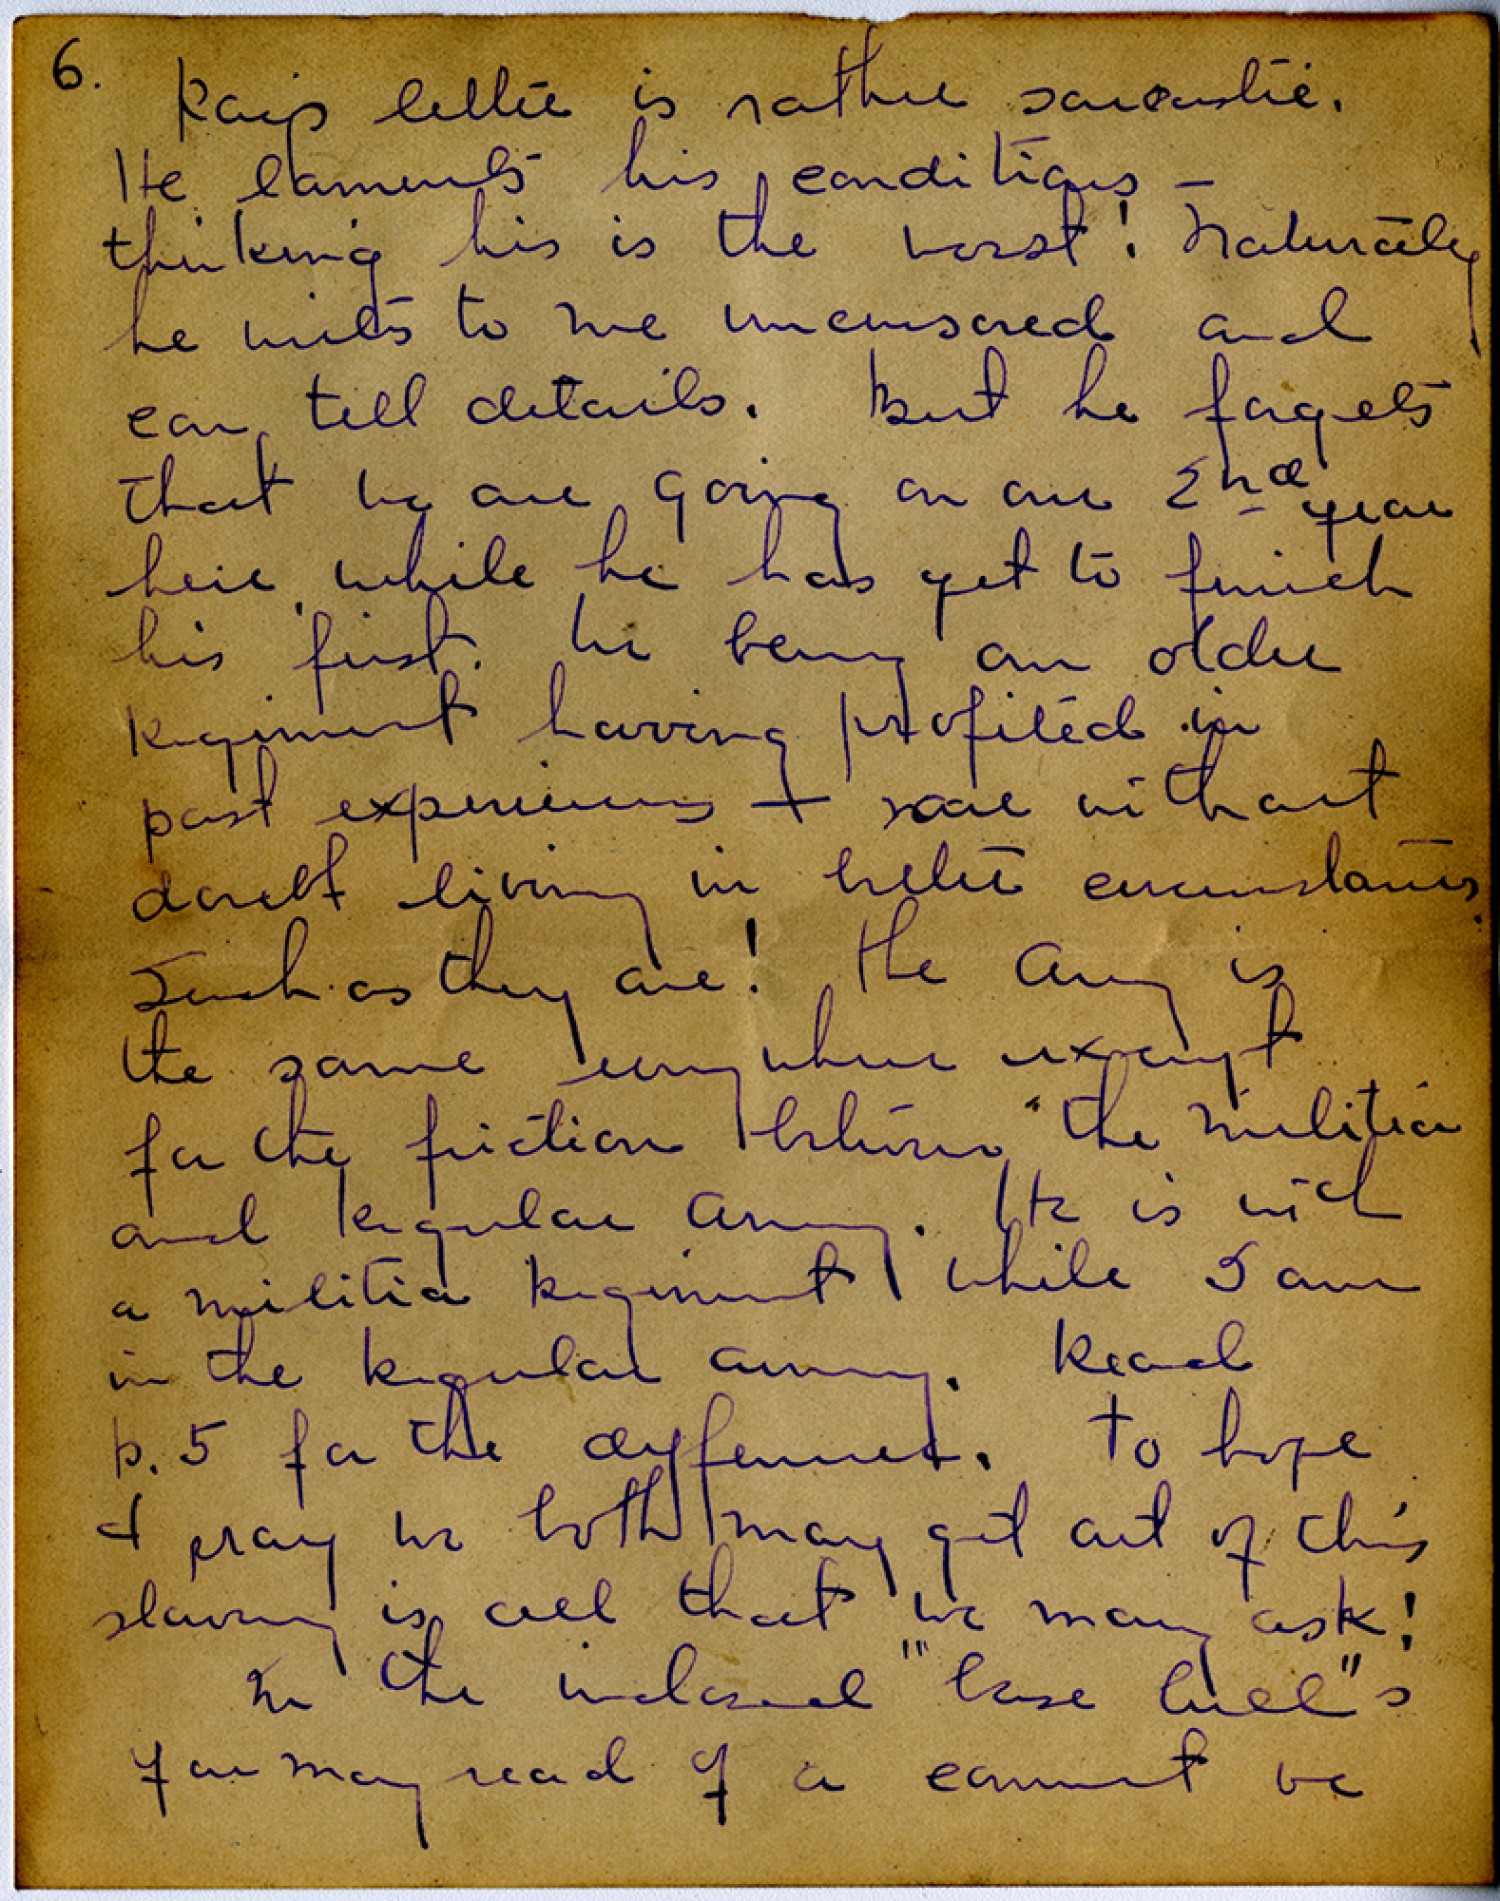 6.
Kais letter is rather sarcastic.
He laments his conditions –
thinking his is the worst! Naturally
he writes to me uncensored and
can tell details. But he forgets
that we are going on our 2nd year
here, while he has yet to finish
his first. We being an older
Regiment having profited in
past experiences + are without
doubt living in better circumstances.
Such as they are! The Army is
the same everywhere except
for the friction between the militia
and Regular Army. He is with
a militia Regiment while I am
in the Regular army. Read
p. 5 for the difference. To hope
+ pray we both may get out of this
slavery is all that we may ask!
In the inclosed "Base
you may read of a concert we